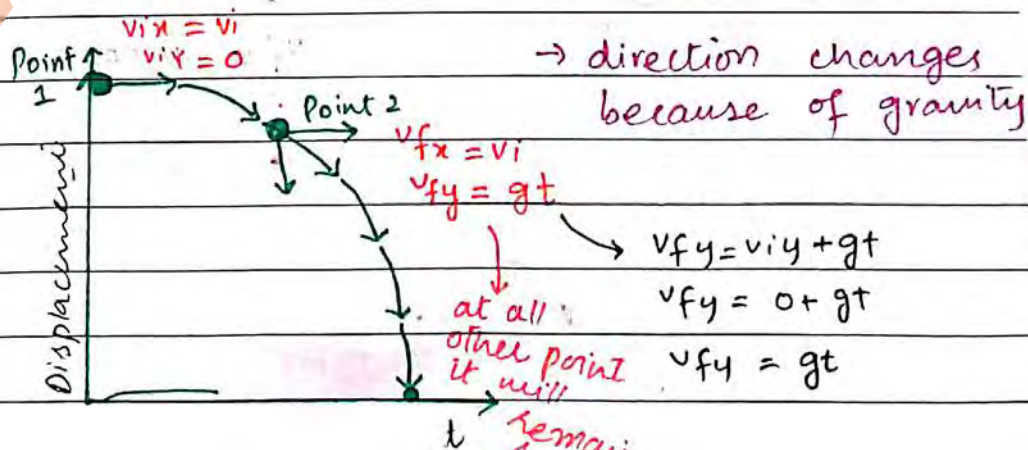 vix = vi
viY = 0
Point
1
→ direction changes
because of gravity
Point 2
vfx = vi
vfy = gt
vfy = viy + gt
vfy = 0 + gt
vfy = gt
at all
other point
it will
Displacement
t